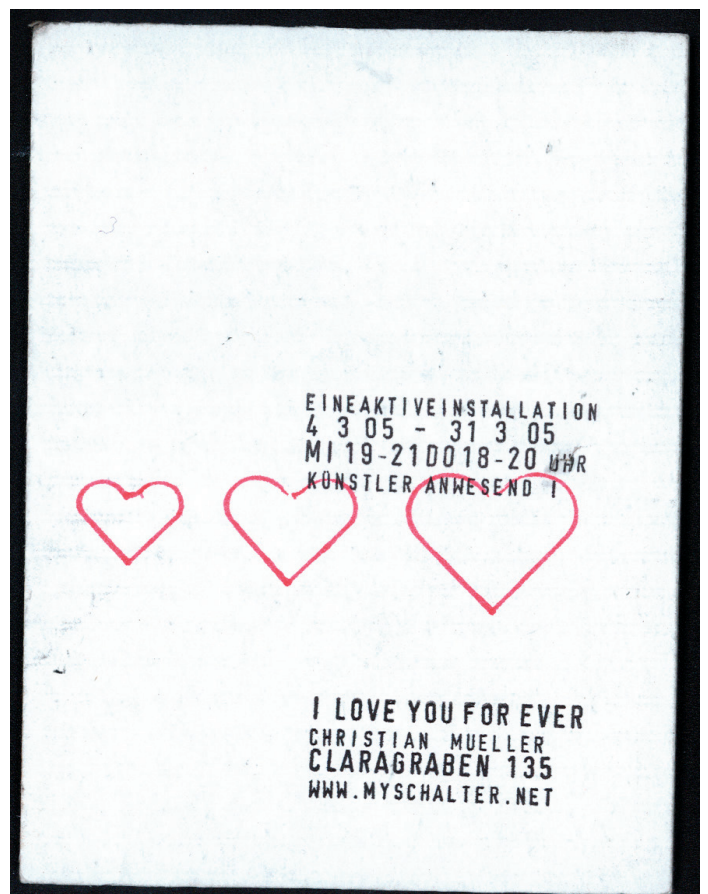 EINEAKTIVEINSTALLATION
4 3 05 - 31 3 05
MI 19-21 DO 18-20 UHR
KÜNSTLER ANWESEND !
I LOVE YOU FOR EVER
CHRISTIAN MUELLER
CLARAGRABEN 135
WWW.MYSCHALTER.NET